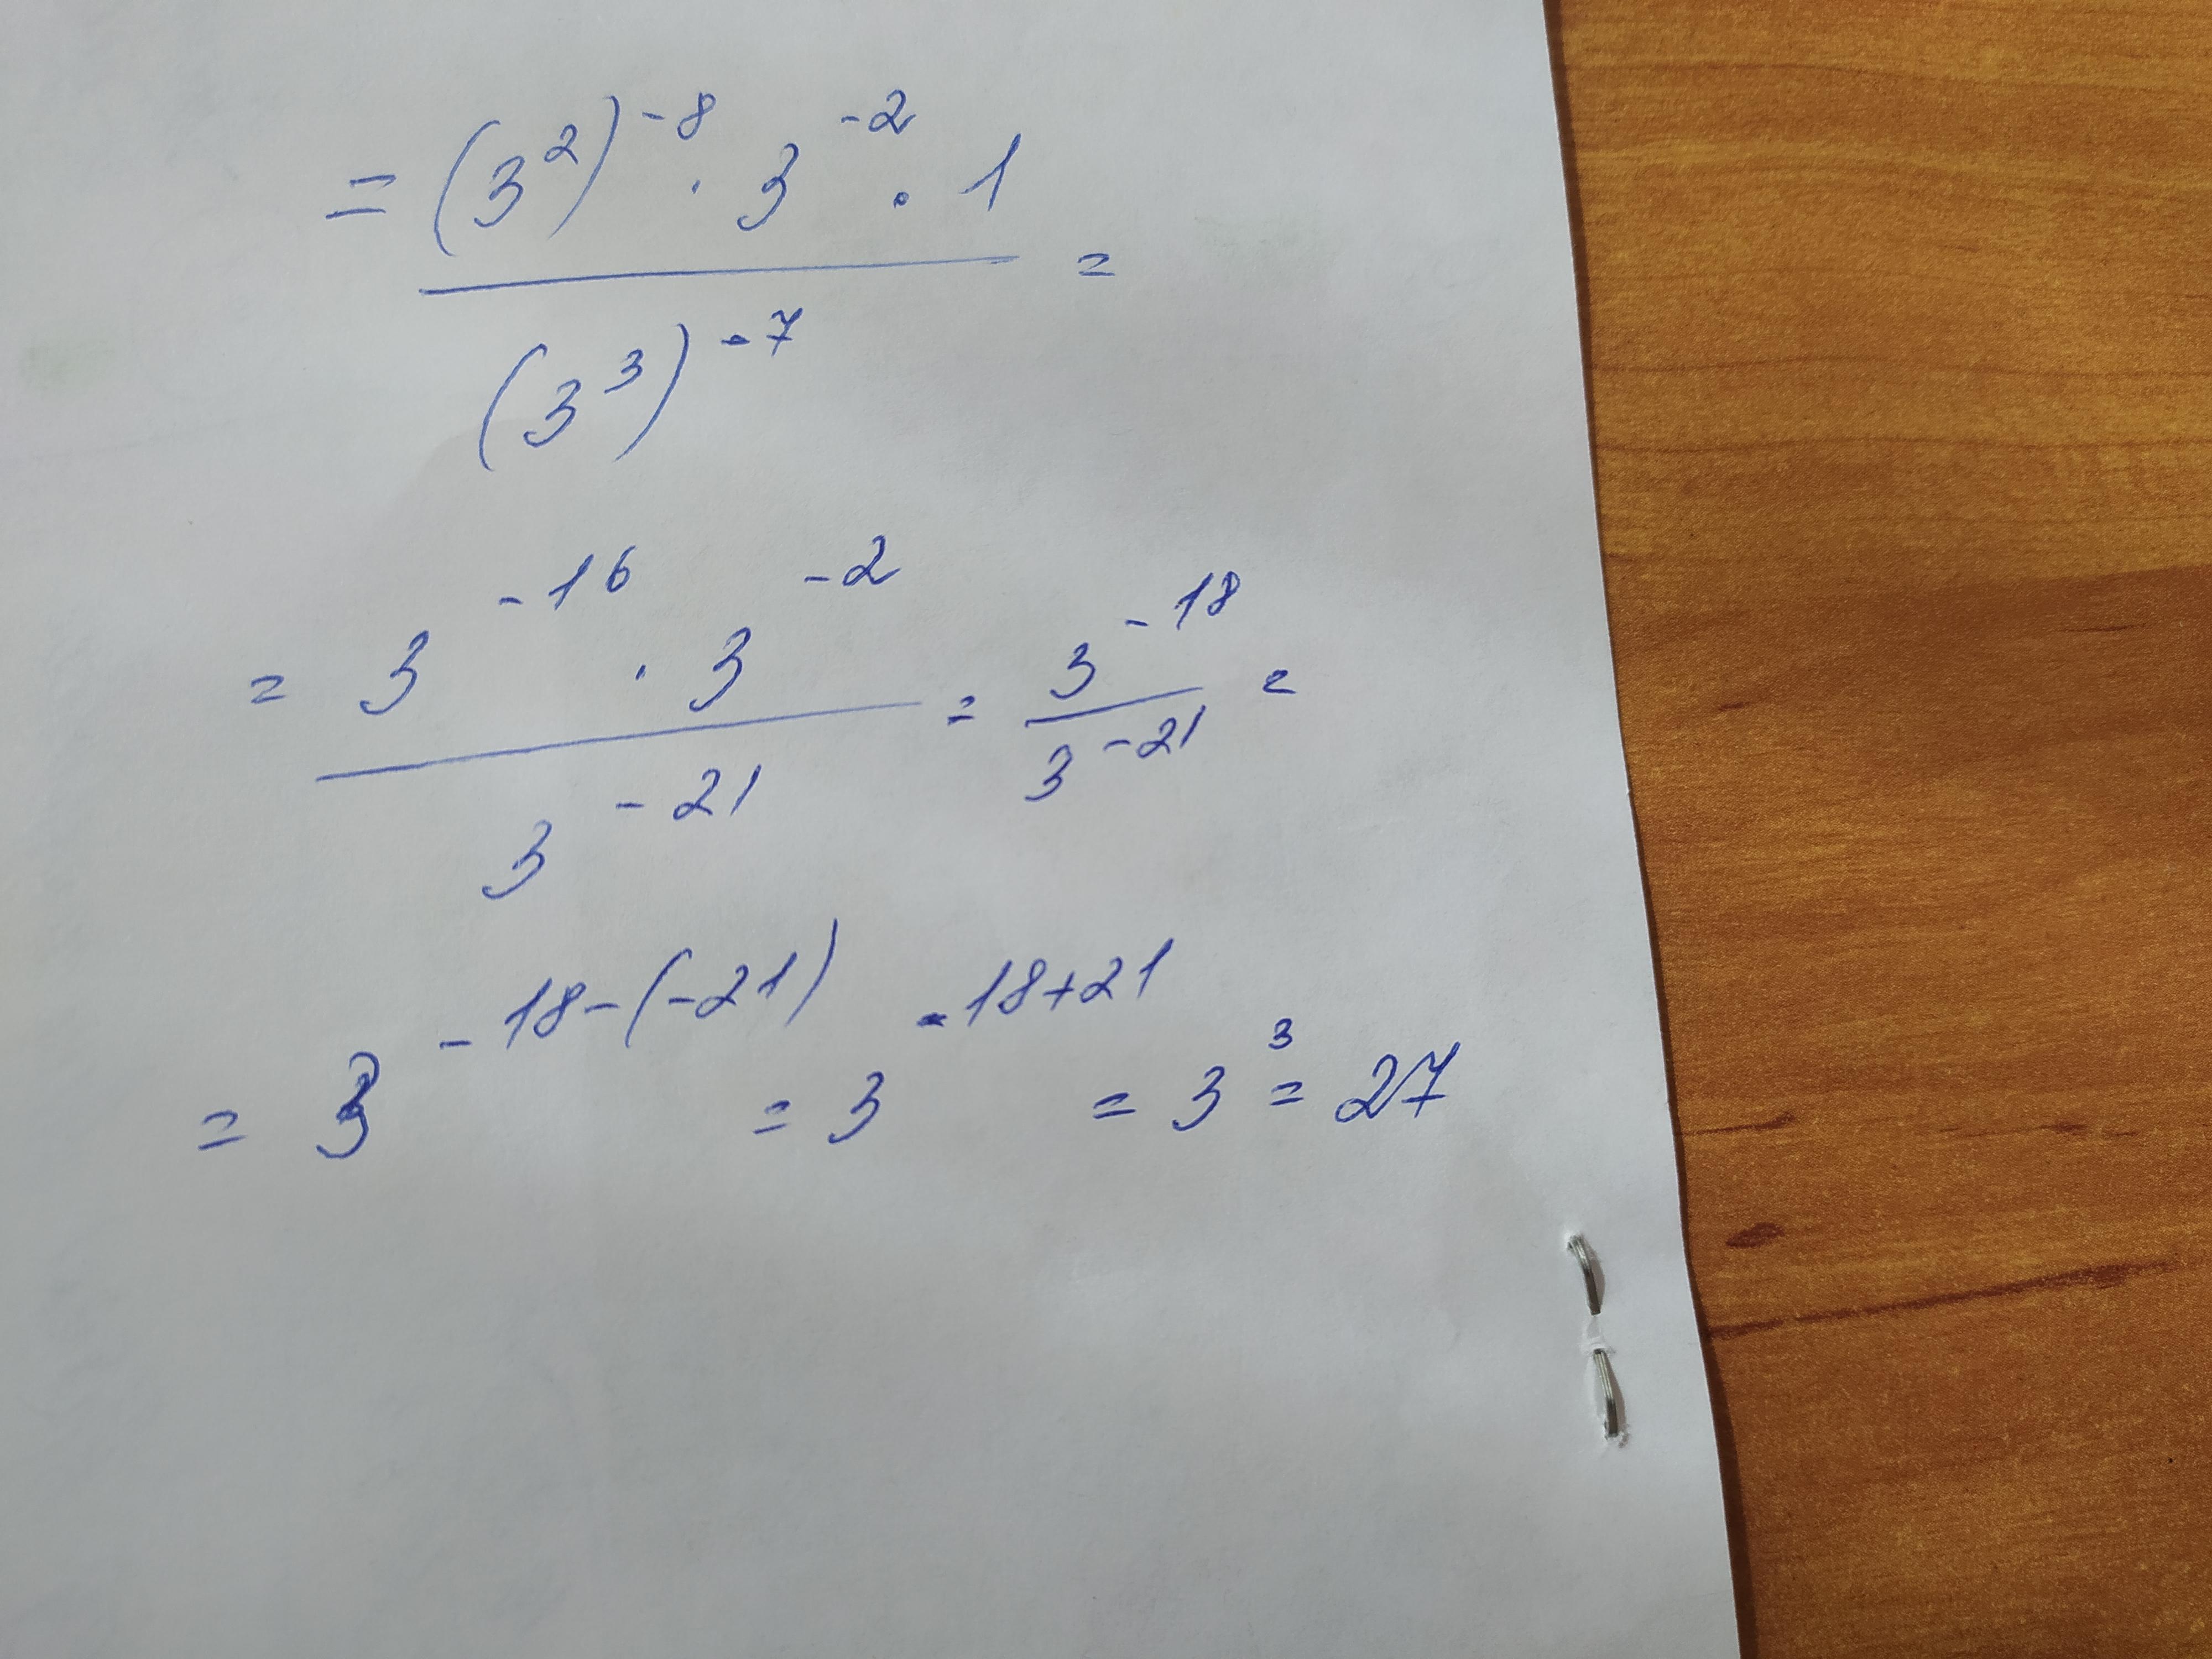 = (3²)⁻⁸ · 3⁻² · 1 / (3³)⁻⁷ =
= 3⁻¹⁶ · 3⁻² / 3⁻²¹ = 3⁻¹⁸ / 3⁻²¹ =
= 3⁻¹⁸⁻⁽⁻²¹⁾ = 3⁻¹⁸⁺²¹ = 3³ = 27